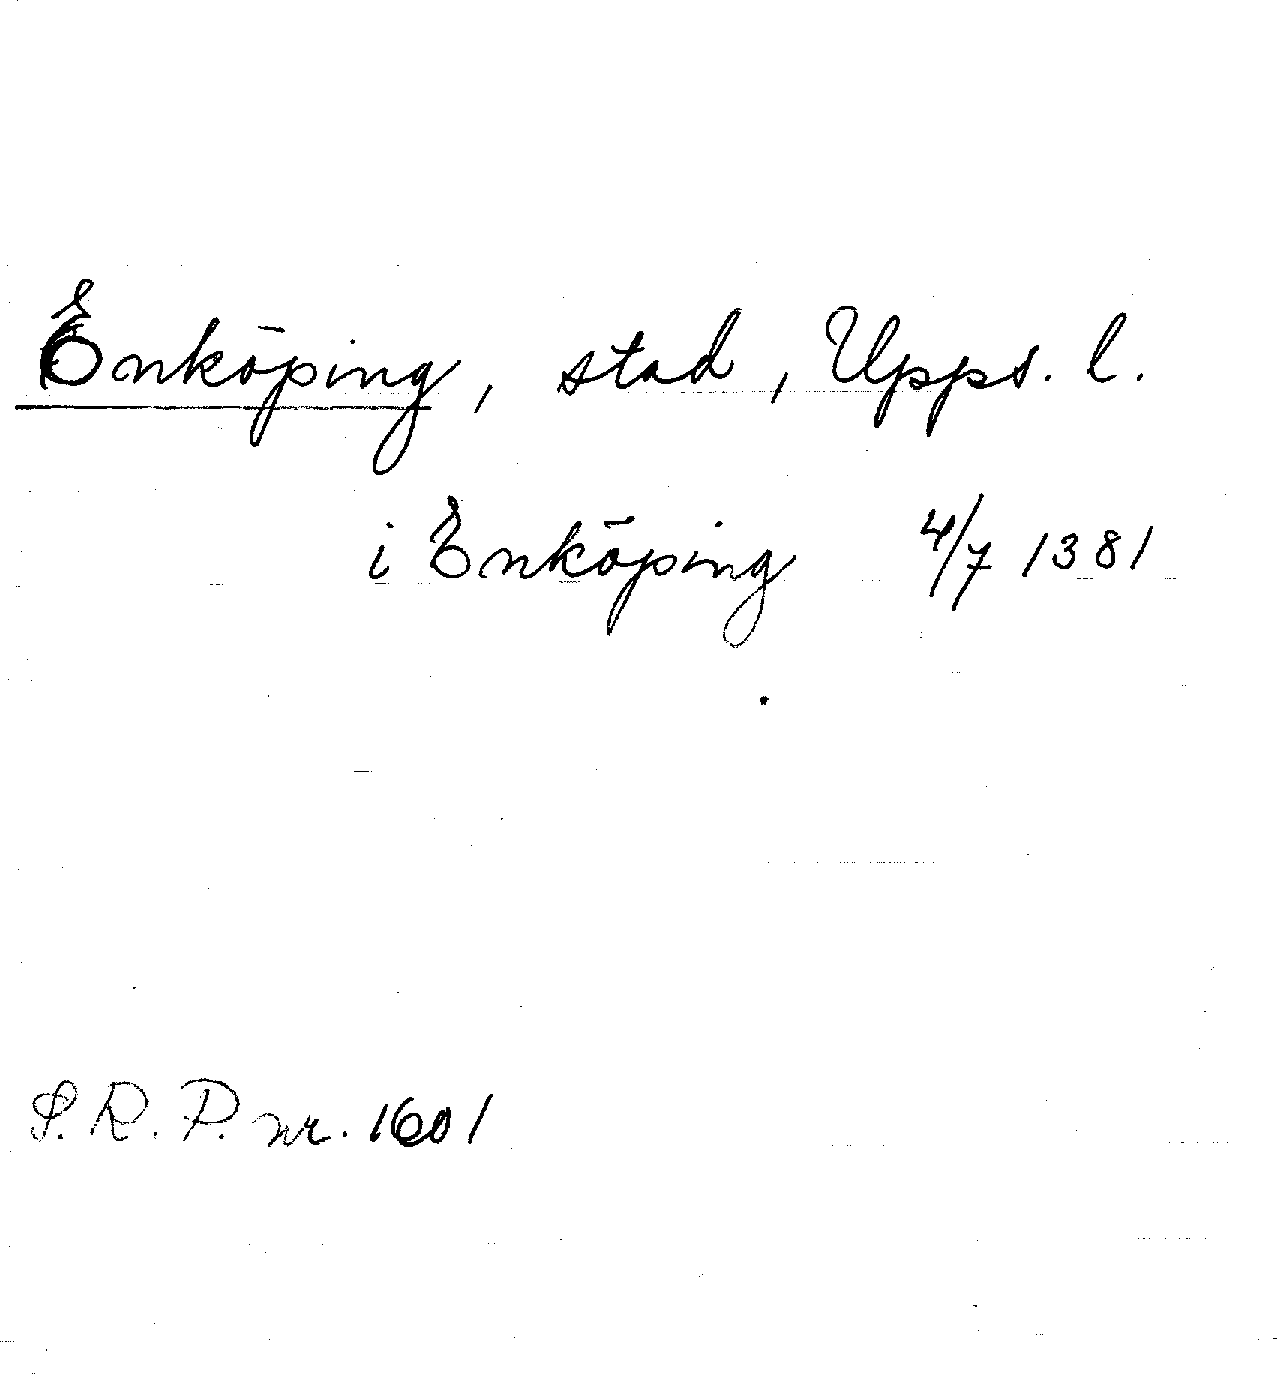 Enköping, stad, Upps. l.
i Enköping 4/7 1381
S.R.P. nr. 1601